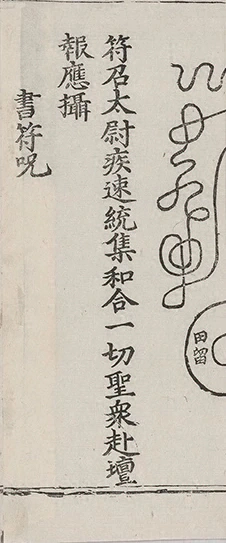 田畱
符召太尉疾速統集和合一切聖衆赴壇
報應攝
書符呪